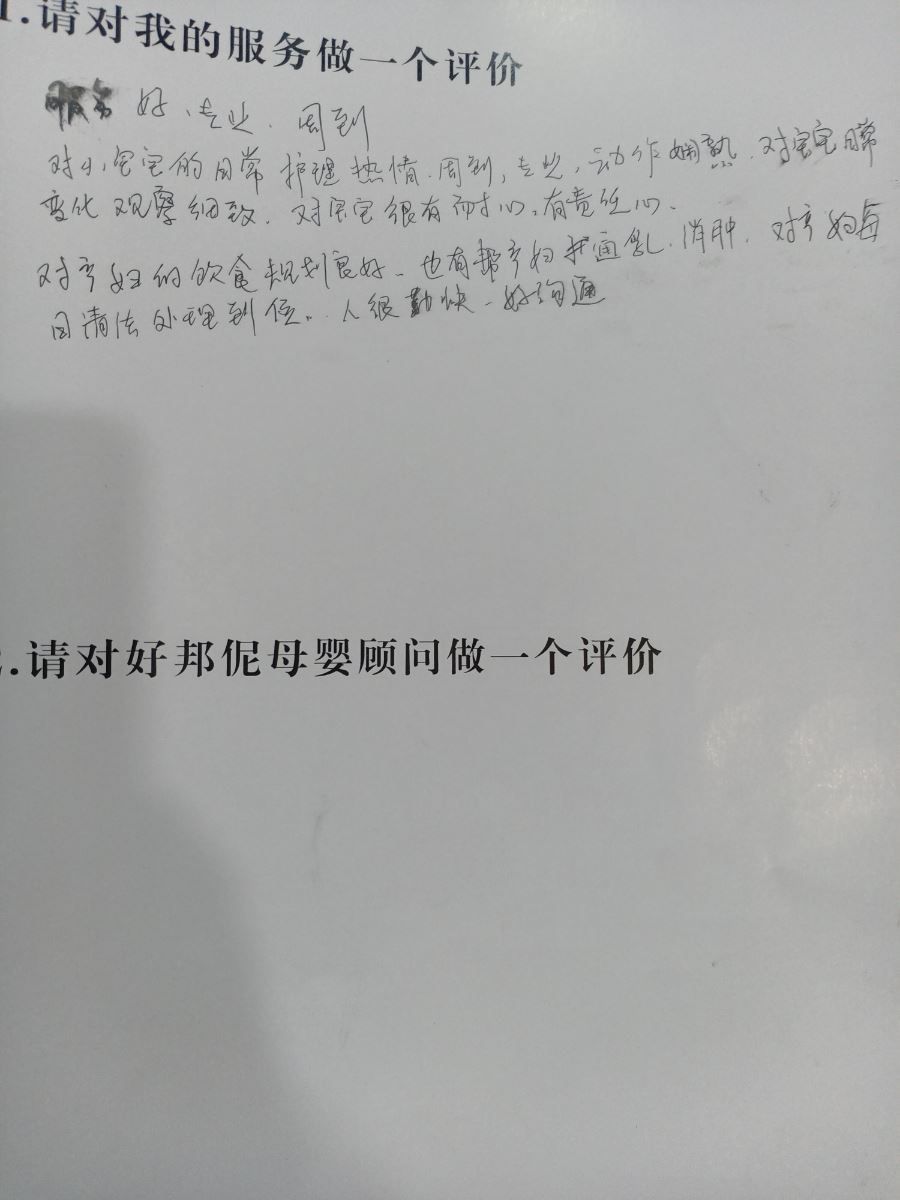 1.请对我的服务做一个评价
服务好、专业、周到
对小宝宝的日常护理热情、周到，专业，动作娴熟、对宝宝日常
变化观察细致、对宝宝很有耐心。有责任心、
对产妇的饮食规划良好、也有帮产妇我通乳、消肿、对产妇每
日清洁处理到位。人很勤快、好沟通
.请对好邦伲母婴顾问做一个评价